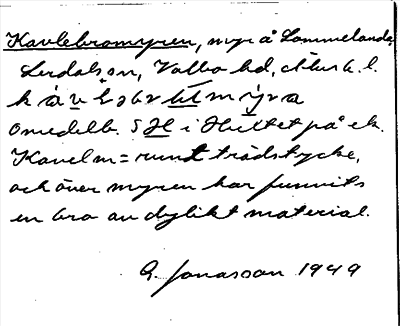 Kavlebromyren, myr å Sommelanda,
Lerdals sn, Valbo hd, Älvsb. l.
omedelb. S H i Hultet på ek.
Kavel m = runt trädstycke,
och över myren har funnits
en bro av dylikt material.
G. Jonasson 1949